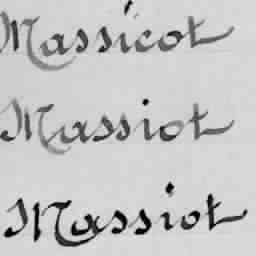 Massicot
Massiot
Massiot